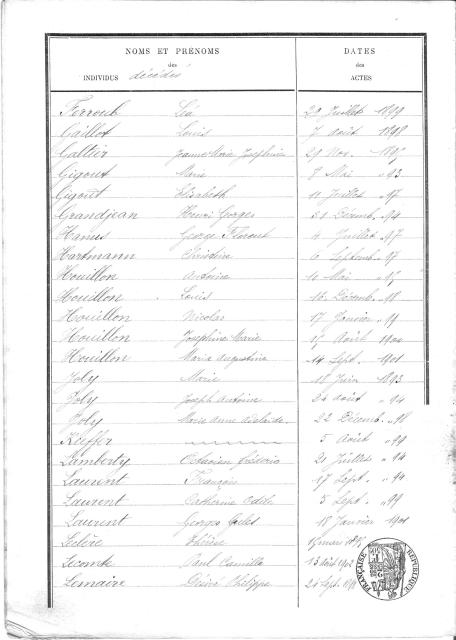 NOMS ET PRÉNOMS DATES
des des
INDIVIDUS décédés ACTES
Ferrouh Léa 29 Juillet 1899
Gaillot Louis 7 août 1898
Galtier Jeanne Marie Joséphine 29 Nov.
Gigout Marie 8 Mai " 93
Gigout Elisabeth 11 Juillet " 97
Grandjean Henri Georges Décemb. " 94
Hanus George Florent 4 Juillet " 97
Hartmann Christine 6 Septemb. " 97
Houillon Antoine 10 Mai " 95
Houillon Louis 16 Décemb. " 98
Houillon Nicolas 17 Janvier " 99
Houillon Joséphine Marie 15 Août 1900
Houillon Marie Augustine 14 Sept. 1901
Joly Marie 18 Juin 1893
Joly Joseph Antoine 20 août " 94
Joly Marie anne adelaïde 22 Décemb. " 98
Kieffer 5 Août " 99
Lamberty Octavien frédéric 21 Juillet " 94
Laurent François 17 Sept. " 94
Laurent Catherine Odile 5 Sept. " 99
Laurent Georges Jules 18 Janvier 1901
Leclère mars
Lecomte Paul Camille 13 août 1902
Lemaire Désiré Philippe 24 Sept.
RÉPUBLIQUE FRANÇAISE